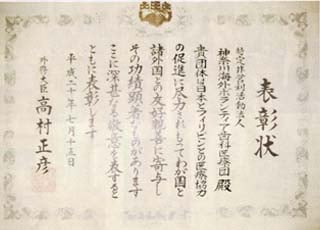 表彰状
特定非営利活動法人
神奈川海外ボランティア歯科医療団 殿
貴団体は日本とフィリピンとの医療協力
の促進に尽力されもってわが国と
諸外国との友好親善に寄与し
その功績顕著なものがあります
ここに深甚なる敬意を表すると
ともに表彰します
平成二十年七月十五日
外務大臣 高村正彦